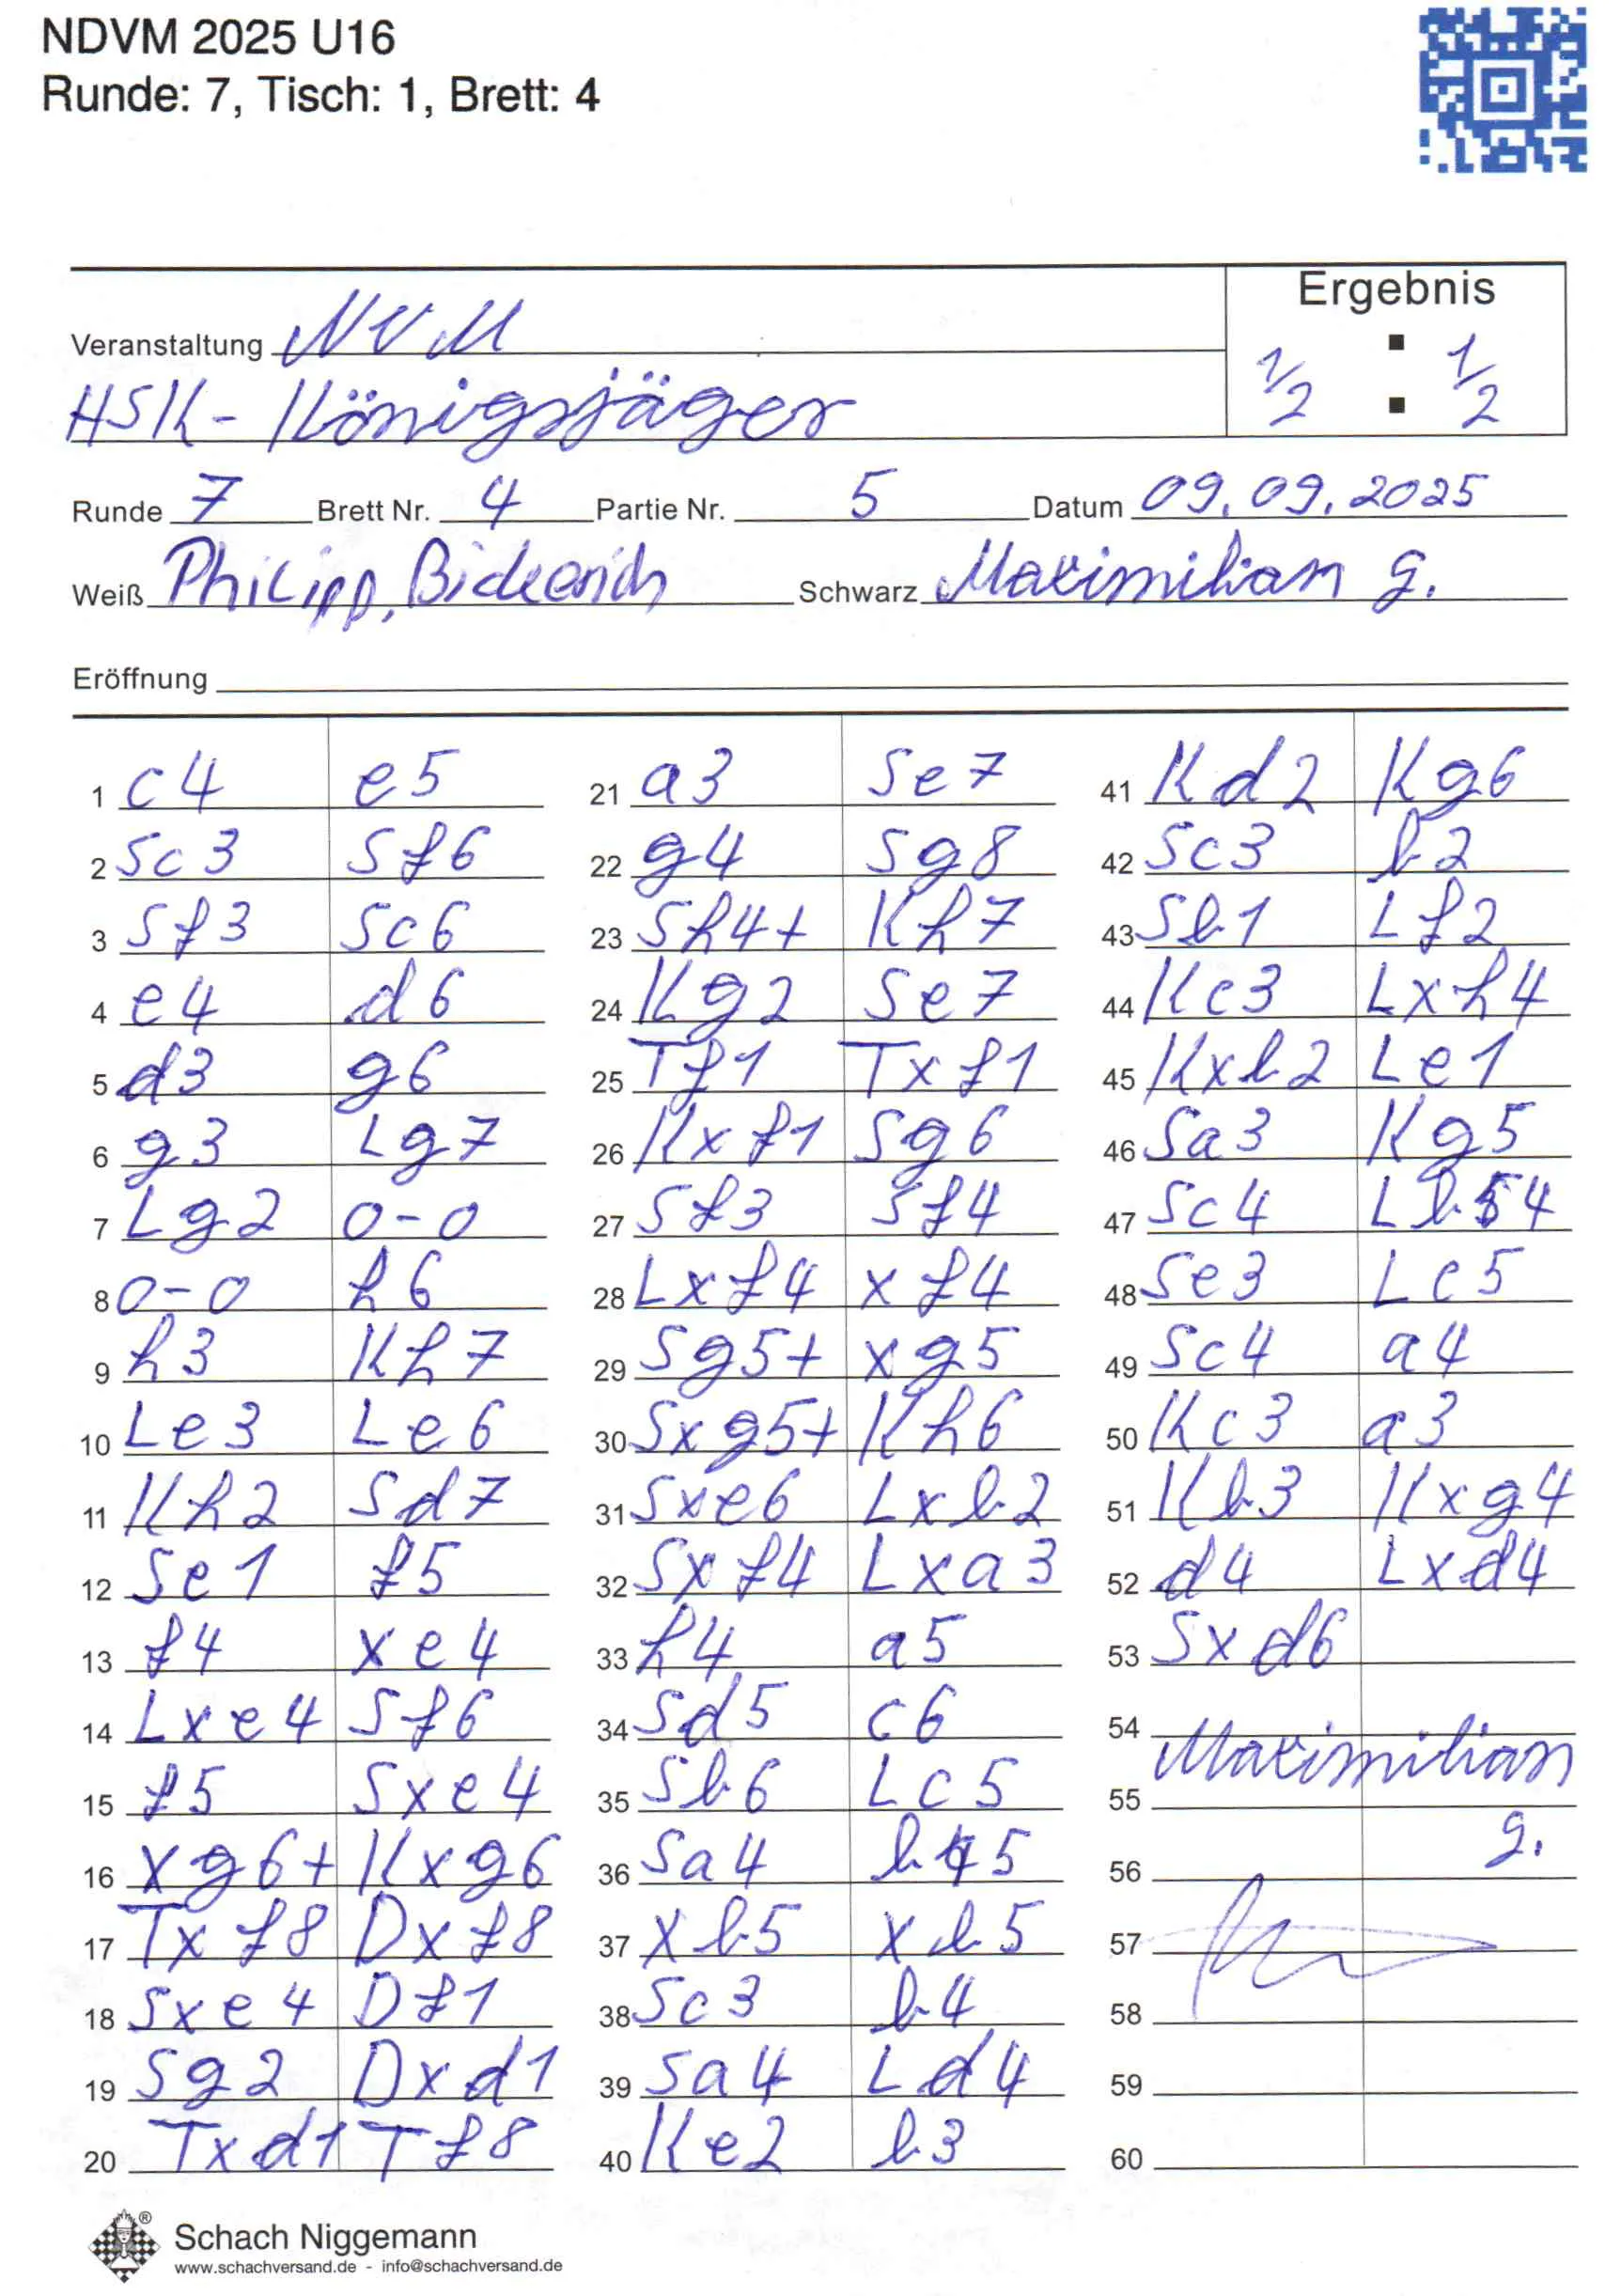 NDVM 2025 U16
Runde: 7, Tisch: 1, Brett: 4
Ergebnis
Veranstaltung NVM
½ : ½
HSK - Königsjäger
Runde 7 Brett Nr. 4 Partie Nr. 5 Datum 09.09.2025
Weiß Philipp, Schwarz Maximilian G.
Eröffnung
1 c4 e5
2 Sc3 Sf6
3 Sf3 Sc6
4 e4 d6
5 d3 g6
6 g3 Lg7
7 Lg2 0-0
8 0-0 h6
9 h3 Kh7
10 Le3 Le6
11 Kh2 Sd7
12 Se1 f5
13 f4 xe4
14 Lxe4 Sf6
15 f5 Sxe4
16 xg6+ Kxg6
17 Txf8 Dxf8
18 Sxe4 Df1
19 Sg2 Dxd1
20 Txd1 Tf8
21 a3 Se7
22 g4 Sg8
23 Sh4+ Kh7
24 Kg2 Se7
25 Tf1 Txf1
26 Kxf1 Sg6
27 Sf3 Sf4
28 Lxf4 xf4
29 Sg5+ xg5
30 Sxg5+ Kh6
31 Sxe6 Lxb2
32 Sxf4 Lxa3
33 h4 a5
34 Sd5 c6
35 Sb6 Lc5
36 Sa4 b5
37 xb5 xb5
38 Sc3 b4
39 Sa4 Ld4
40 Ke2 b3
41 Kd2 Kg6
42 Sc3 b2
43 Sb1 Lf2
44 Kc3 Lxh4
45 Kxb2 Le1
46 Sa3 Kg5
47 Sc4 Lb4
48 Se3 Lc5
49 Sc4 a4
50 Kc3 a3
51 Kb3 Kxg4
52 d4 Lxd4
53 Sxd6
54
Maximilian
55
G.
56
57
58
59
60
® Schach Niggemann
www.schachversand.de - info@schachversand.de